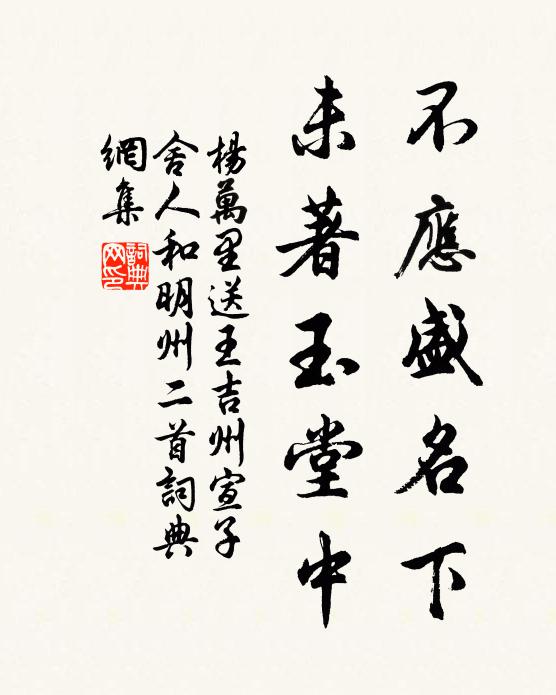 不應盛名下
未著玉堂中
楊萬里送王吉州宣子
舍人和明州二首詞典
網集
詞典
网印